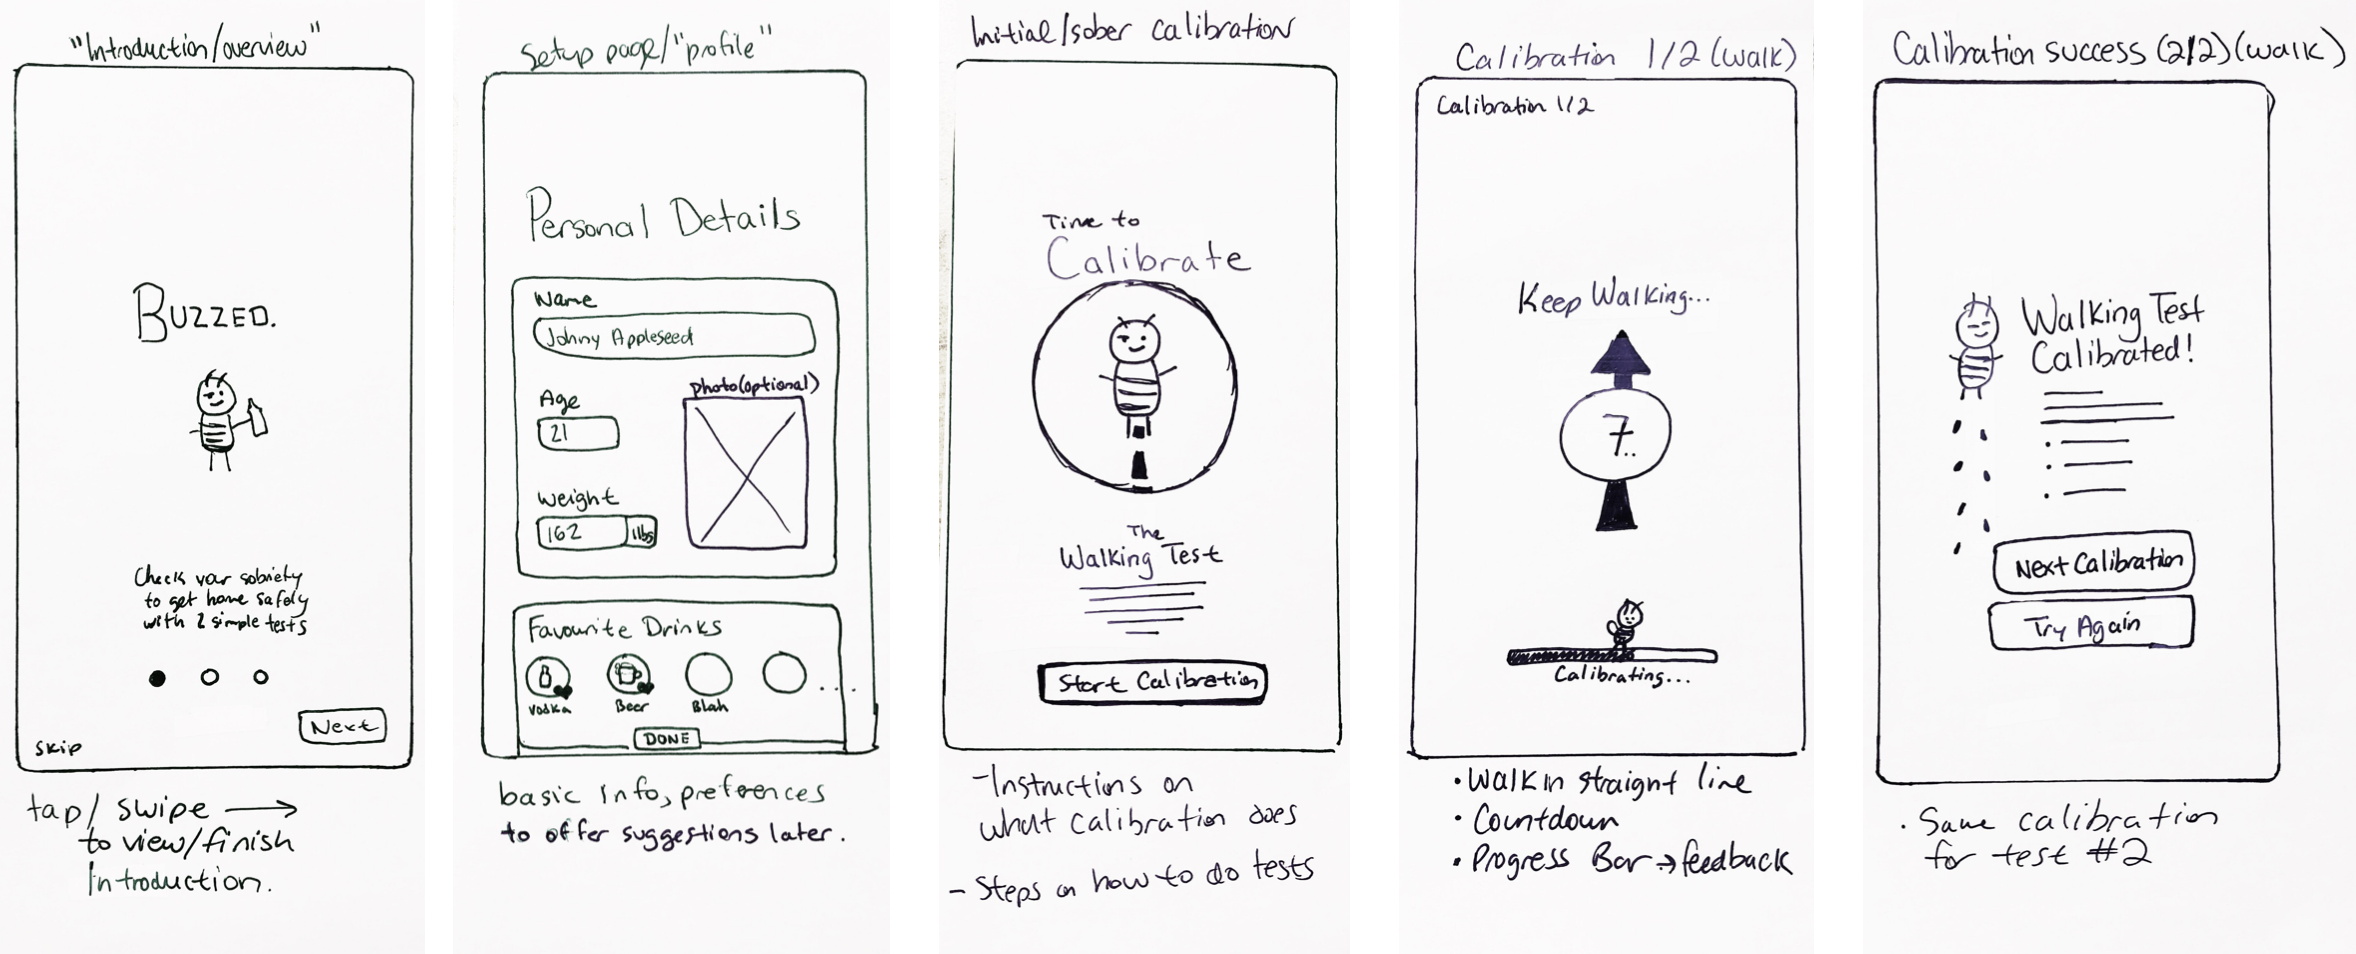 "Introduction/overview"
BUZZED.
Check your sobriety
to get home safely
with 2 simple tests
Next
Skip
tap/ swipe →
to view/finish
Introduction.
Setup page/"profile"
Personal Details
Name
Johny Appleseed
Age
21
photo(optional)
Weight
162 lbs
Favourite Drinks
Vodka
Beer
Blah
....
DONE
basic info, preferences
to offer suggestions later.
Initial/sober calibration
Time to
Calibrate
The
Walking Test
Start Calibration
- Instructions on
what calibration does
- Steps on how to do tests
Calibration 1/2 (walk)
Calibration 1/2
Keep Walking...
7..
Calibrating...
• Walk in straight line
• Countdown
• Progress Bar → feedback
Calibration success (2/2) (walk)
Walking Test
Calibrated!
Next Calibration
Try Again
• Same calibration
for test #2